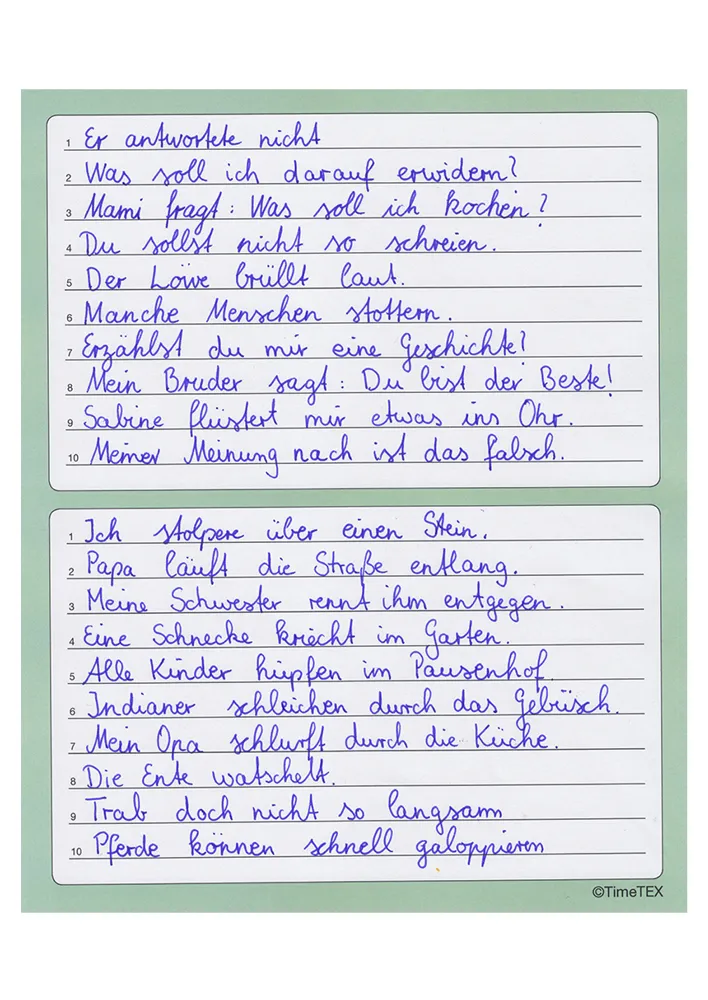 1 Er antwortete nicht
2 Was soll ich darauf erwidern?
3 Mami fragt: Was soll ich kochen?
4 Du sollst nicht so schreien.
5 Der Löwe brüllt laut.
6 Manche Menschen stottern.
7 Erzählst du mir eine Geschichte?
8 Mein Bruder sagt: Du bist der Beste!
9 Sabine flüstert mir etwas ins Ohr.
10 Meiner Meinung nach ist das falsch.
1 Ich stolpere über einen Stein.
2 Papa läuft die Straße entlang.
3 Meine Schwester rennt ihm entgegen.
4 Eine Schnecke kriecht im Garten.
5 Alle Kinder hüpfen im Pausenhof
6 Indianer schleichen durch das Gebüsch.
7 Mein Opa schlurft durch die Küche.
8 Die Ente watschelt.
9 Trab doch nicht so langsam
10 Pferde können schnell galoppieren
©TimeTEX